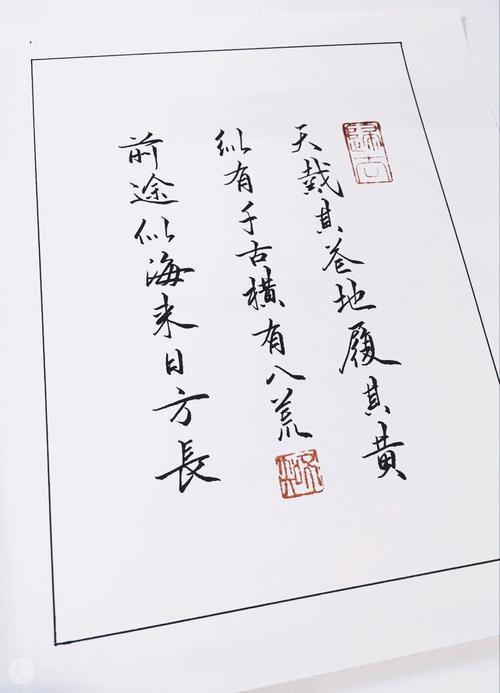 天戴其苍地履其黄
纵有千古横有八荒
前途似海来日方長